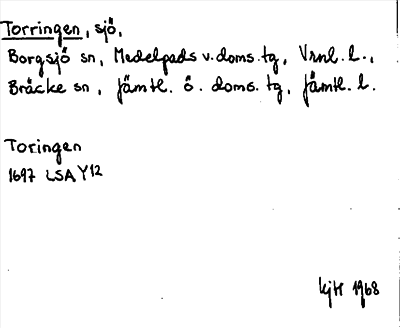 Torringen, sjö,
Borgsjö sn, Medelpads v. doms. tg, Vrnl. l.,
Bräcke sn, Jämtl. ö. doms. tg, Jämtl. l.
Toringen
1697 LSA Y12
1968